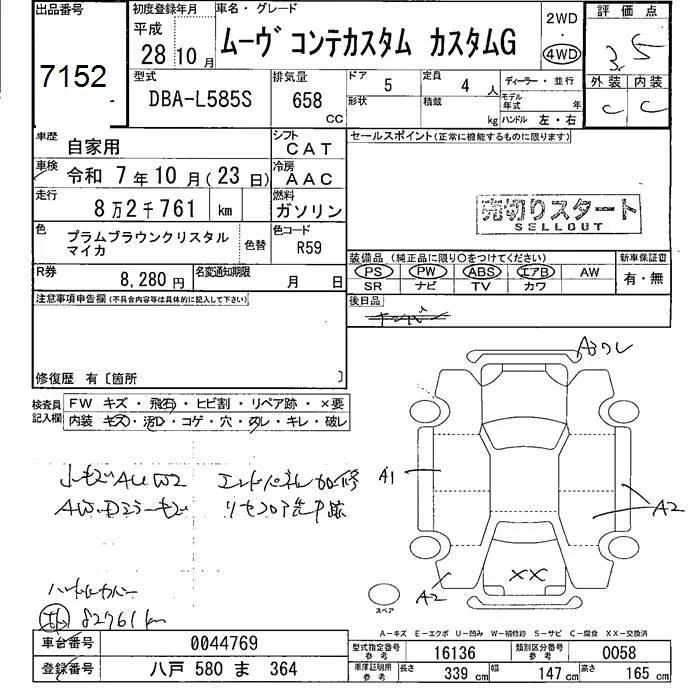 出品番号
7152
初度登録年月
平成
28年10月
車名・グレード
ムーヴ コンテカスタム カスタムG
2WD
・
4WD
評価点
3.5
外装 内装
C C
型式
DBA-L585S
排気量
658
CC
ドア
5
形状
定員
4人
積載
kg
ディーラー・並行
モデル年式 年
ハンドル 左・右
車歴
自家用
シフト
CAT
セールスポイント(正常に機能するものに限ります)
車検
令和 7年10月(23日)
冷房
AAC
走行
8万2千761 km
燃料
ガソリン
売切りスタート
SELLOUT
色
プラムブラウンクリスタル
マイカ
色替
色コード
R59
装備品(純正品に限り○をつけてください)
PS PW ABS エアB AW
SR ナビ TV カワ
新車保証書
有・無
R券
8,280円
名変通知期限
月 日
後日品
注意事項申告欄(不具合内容等は具体的に記入して下さい)
修復歴 有〔箇所 〕
検査員
記入欄
FW キズ・飛石・ヒビ割・リペア跡・×要
内装・キズ・汚D・コゲ・穴・タレ・キレ・破レ
A3ワレ
A1
A2
A2
XX
82761km
スペア
A-キズ E-エクボ U-凹み W-補修跡 S-サビ C-腐食 XX-交換済
車台番号
0044769
登録番号
八戸 580 ま 364
型式指定番号
参考
16136
類別区分番号
参考
0058
車庫証明用
参考
長さ
339 cm
幅
147 cm
高さ
165 cm